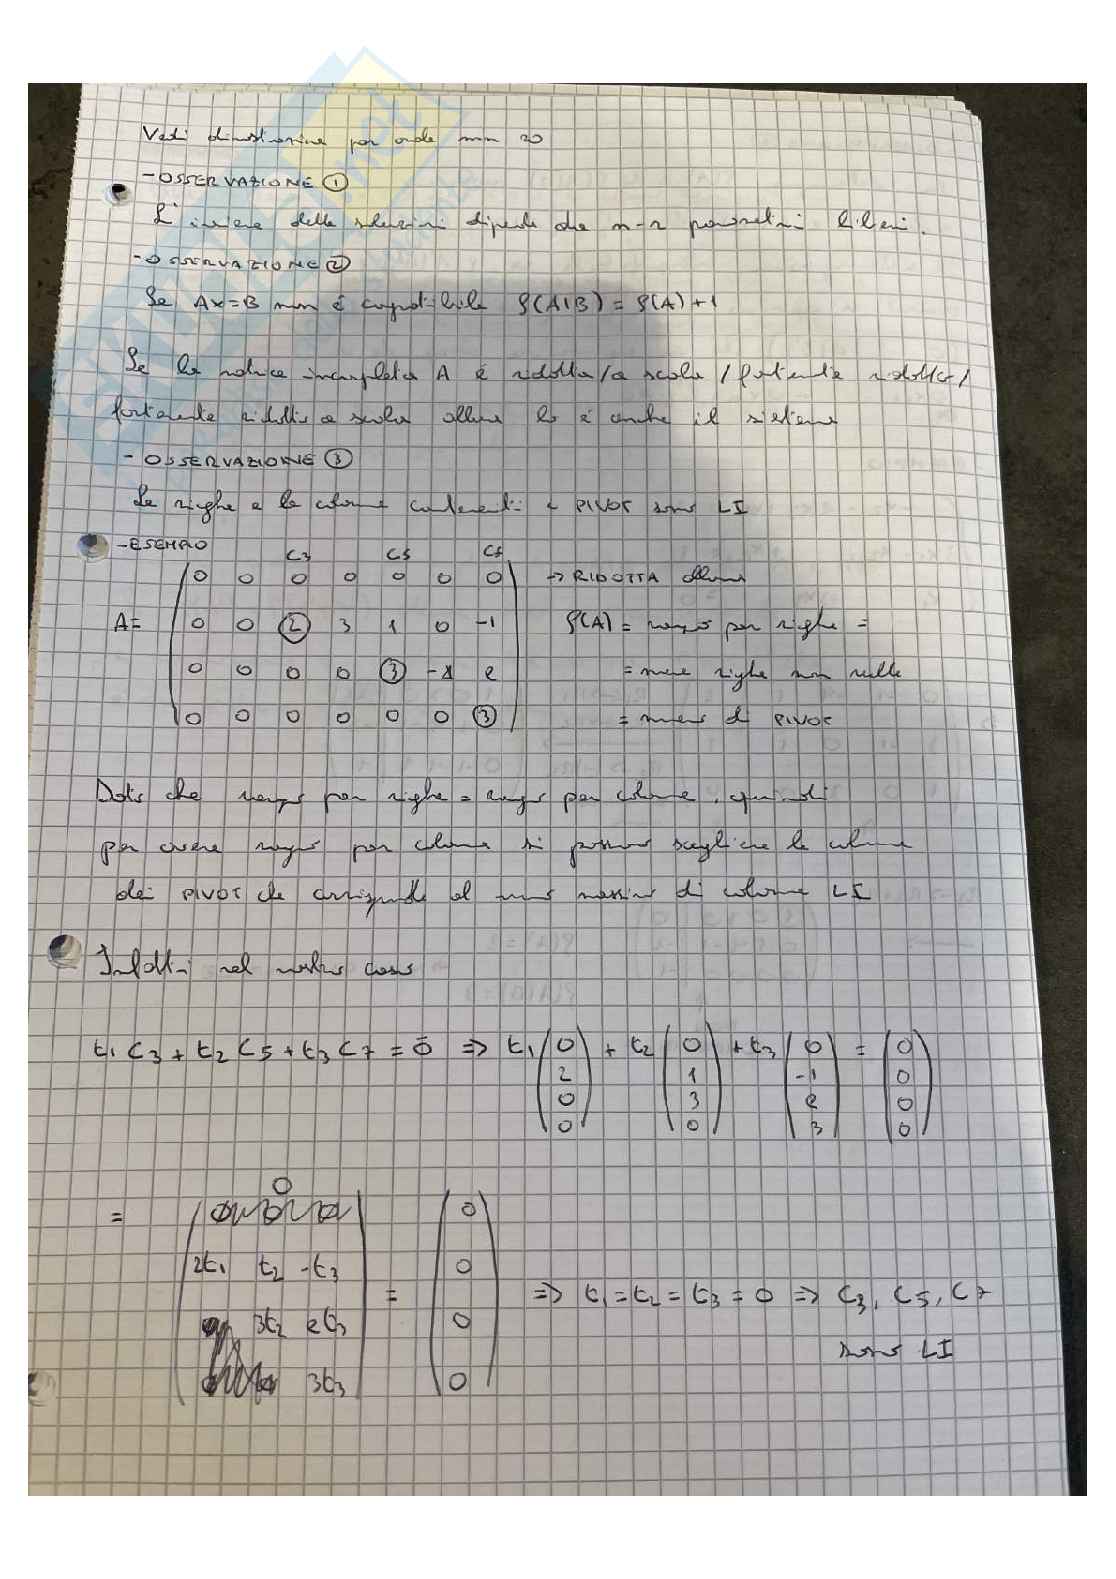 Vedi dimostrazione per onde min 20
- OSSERVAZIONE ①
L'insieme delle soluzioni dipende da n-r parametri liberi.
- OSSERVAZIONE ②
Se Ax=B non é compatibile ρ(A|B) = ρ(A)+1
Se la matrice incompleta A é ridotta/a scala/fortemente ridotta/
fortemente ridotta a scala allora lo é anche il sistema
- OSSERVAZIONE ③
Le righe e le colonne contenenti i PIVOT sono LI
- ESEMPIO C3 C5 C7
0 0 0 0 0 0 0 → RIDOTTA allora
A= 0 0 ② 3 1 0 -1 ρ(A) = rango per righe =
0 0 0 0 ③ -1 2 = num righe non nulle
0 0 0 0 0 0 ③ = numero di PIVOT
Dato che rango per righe = rango per colonne, quindi
per avere rango per colonne si possono scegliere le colonne
dei PIVOT che corrisponde al num massimo di colonne LI
Infatti nel nostro caso
t1 C3 + t2 C5 + t3 C7 = 0̄ => t1 (0 2 0 0) + t2 (0 1 3 0) + t3 (0 -1 2 3) = (0 0 0 0)
0
= 0
2t1 t2 -t3 0
3t2 2t3 = 0 => t1=t2=t3=0 => C3, C5, C7
3t3 0 sono LI